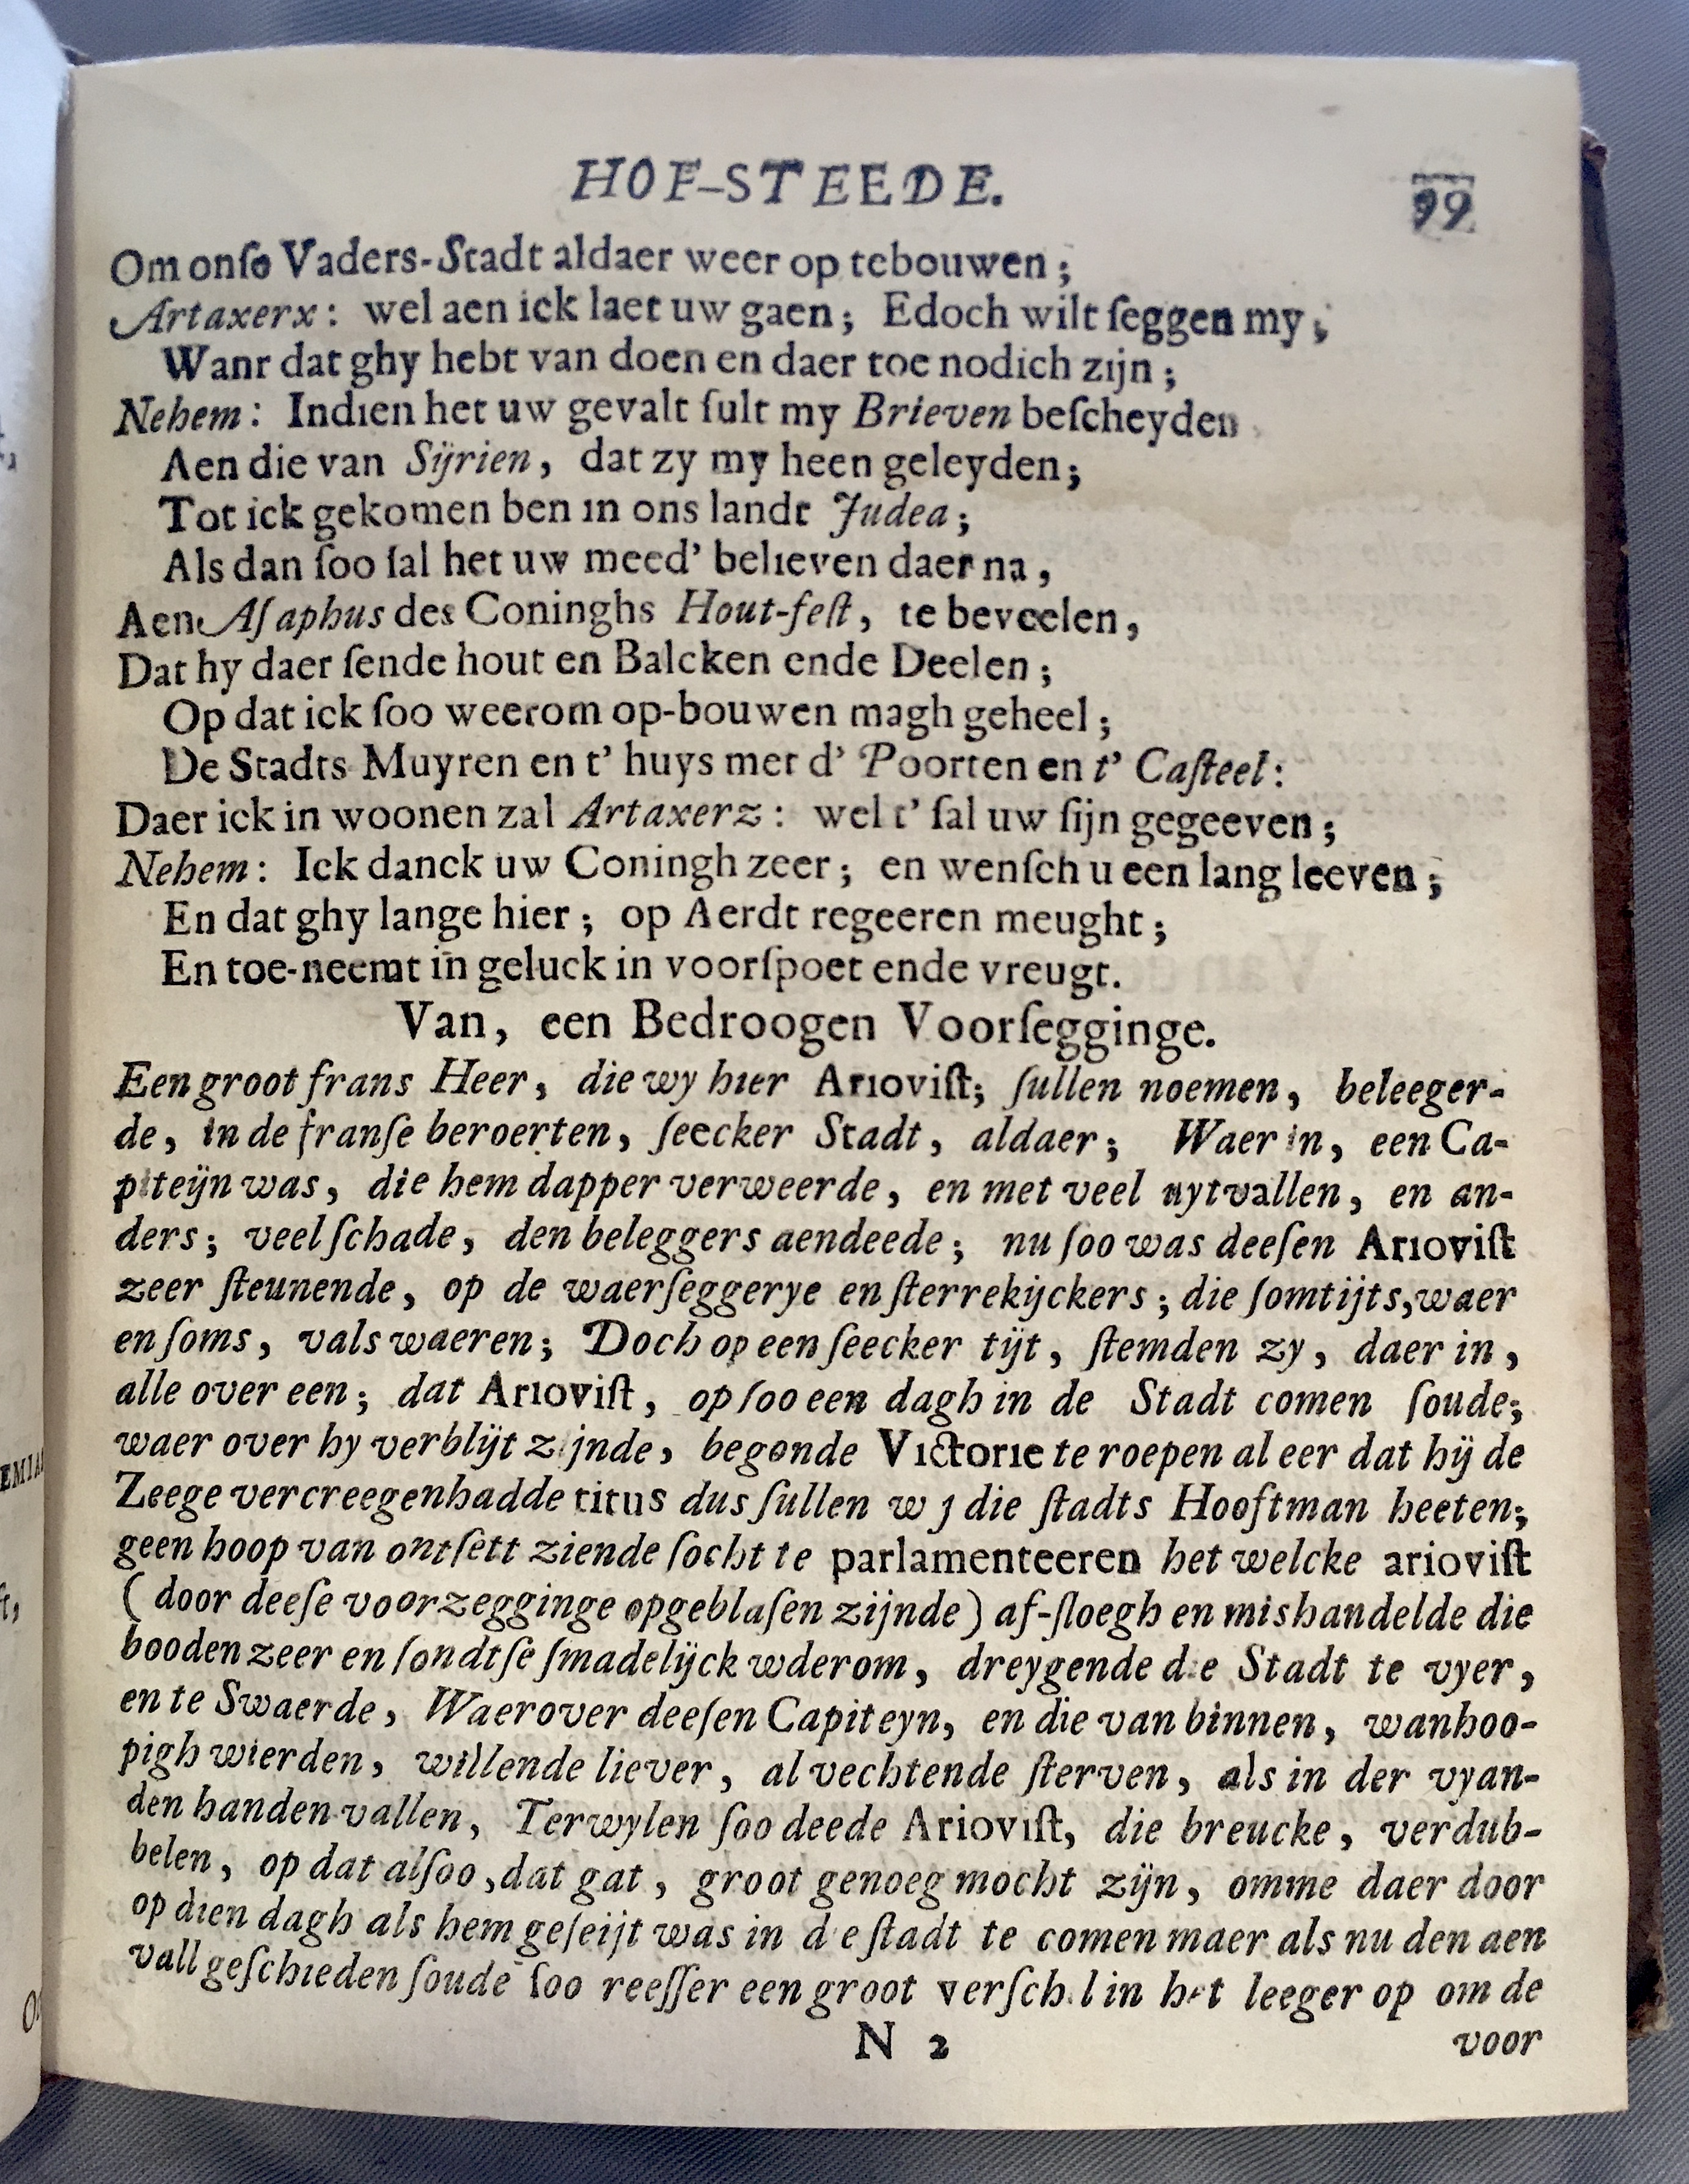 HOF-STEEDE.
99
Om onſe Vaders-Stadt aldaer weer op tebouwen ;
Artaxerx : wel aen ick laet uw gaen ; Edoch wilt ſeggen my ;
Wanr dat ghy hebt van doen en daer toe nodich zijn ;
Nehem : Indien het uw gevalt ſult my Brieven beſcheyden
Aen die van Sijrien , dat zy my heen geleyden ;
Tot ick gekomen ben in ons landt Judea ;
Als dan ſoo ſal het uw meed' believen daer na ,
Aen Aſaphus des Coninghs Hout-feſt , te beveelen ,
Dat hy daer ſende hout en Balcken ende Deelen ;
Op dat ick ſoo weerom op-bouwen magh geheel ;
De Stadts Muyren en t' huys met d' Poorten en t' Caſteel :
Daer ick in woonen zal Artaxerz : wel t' ſal uw ſijn gegeeven ;
Nehem : Ick danck uw Coningh zeer ; en wenſch u een lang leeven ;
En dat ghy lange hier ; op Aerdt regeeren meught ;
En toe-neemt in geluck in voorſpoet ende vreugt.
Van, een Bedroogen Voorſegginge.
Een groot frans Heer , die wy hier Arioviſt ; ſullen noemen , beleeger-
de , in de franſe beroerten , ſeecker Stadt , aldaer ; Waer in , een Ca-
piteijn was , die hem dapper verweerde , en met veel uytvallen , en an-
ders ; veel ſchade , den beleggers aendeede ; nu ſoo was deeſen Arioviſt
zeer ſteunende , op de waerſeggerye en ſterrekijckers ; die ſomtijts,waer
en ſoms , vals waeren ; Doch op een ſeecker tijt , ſtemden zy , daer in ,
alle over een ; dat Arioviſt , op ſoo een dagh in de Stadt comen ſoude ;
waer over hy verblijt zijnde , begonde Victorie te roepen al eer dat hij de
Zeege vercreegenhadde titus dus ſullen wj die ſtadts Hooftman heeten ;
geen hoop van ontſett ziende ſocht te parlamenteeren het welcke arioviſt
( door deeſe voorzegginge opgeblaſen zijnde ) af-ſloegh en mishandelde die
booden zeer en ſondtſe ſmadelijck wderom , dreygende die Stadt te vyer ,
en te Swaerde , Waerover deeſen Capiteyn, en die van binnen , wanhoo-
pigh wierden , willende liever , al vechtende ſterven , als in der vyan-
den handen vallen , Terwylen ſoo deede Arioviſt, die breucke , verdub-
belen , op dat alſoo ,dat gat , groot genoeg mocht zijn , omme daer door
op dien dagh als hem geſeijt was in de ſtadt te comen maer als nu den aen
vall geſchieden ſoude ſoo reeſſer een groot verſchil in het leeger op om de
N 2
voor